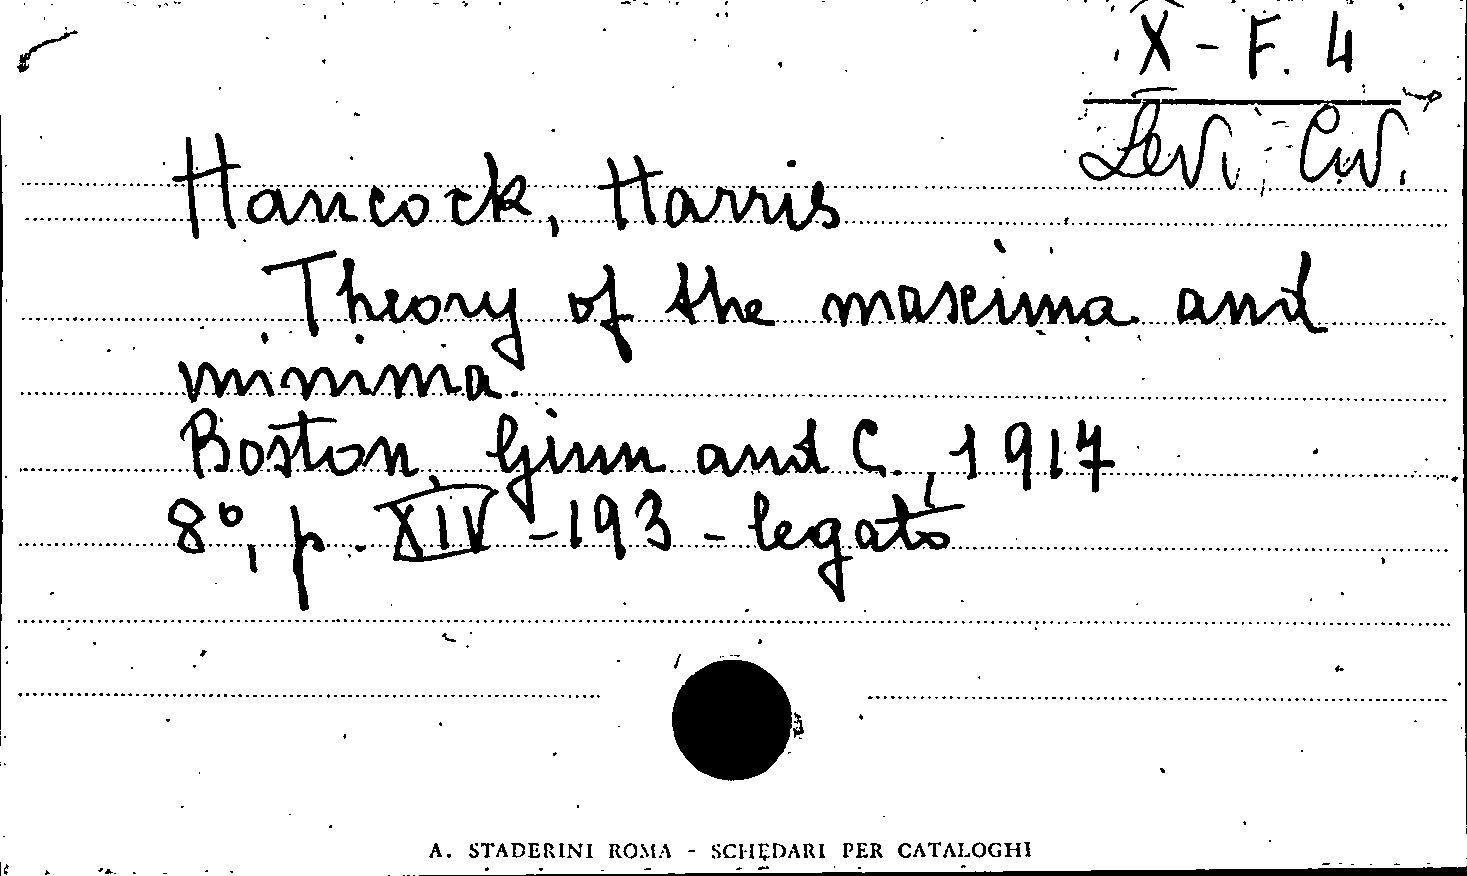 X - F. 4
Levi, Civ.
Hancock, Harris
Theory of the maxima and
minima.
Boston, Ginn and C., 1917
8°, p. XIV - 193 - legato
A. STADERINI ROMA - SCHEDARI PER CATALOGHI